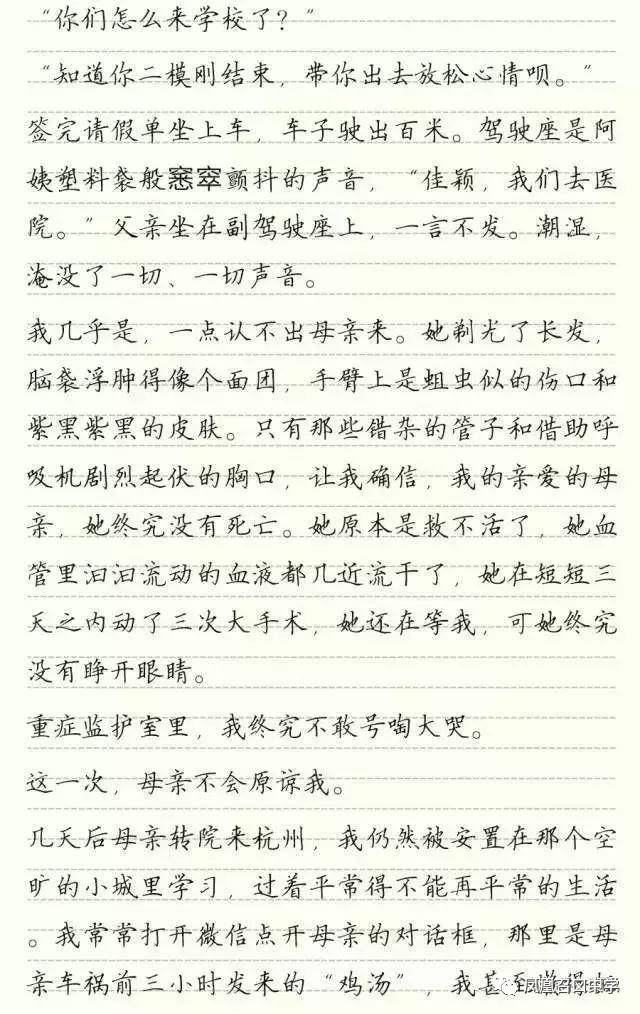 “你们怎么来学校了？”
“知道你二模刚结束，带你出去放松心情呗。”
签完请假单坐上车，车子驶出百米。驾驶座是阿
姨塑料袋般窸窣颤抖的声音，“佳颖，我们去医
院。”父亲坐在副驾驶座上，一言不发。潮湿，
淹没了一切、一切声音。
我几乎是，一点认不出母亲来。她剃光了长发，
脑袋浮肿得像个面团，手臂上是蛆虫似的伤口和
紫黑紫黑的皮肤。只有那些错杂的管子和借助呼
吸机剧烈起伏的胸口，让我确信，我的亲爱的母
亲，她终究没有死亡。她原本是救不活了，她血
管里汩汩流动的血液都几近流干了，她在短短三
天之内动了三次大手术，她还在等我，可她终究
没有睁开眼睛。
重症监护室里，我终究不敢号啕大哭。
这一次，母亲不会原谅我。
几天后母亲转院来杭州，我仍然被安置在那个空
旷的小城里学习，过着平常得不能再平常的生活
。我常常打开微信点开母亲的对话框，那里是母
亲车祸前三小时发来的“鸡汤”，我甚至